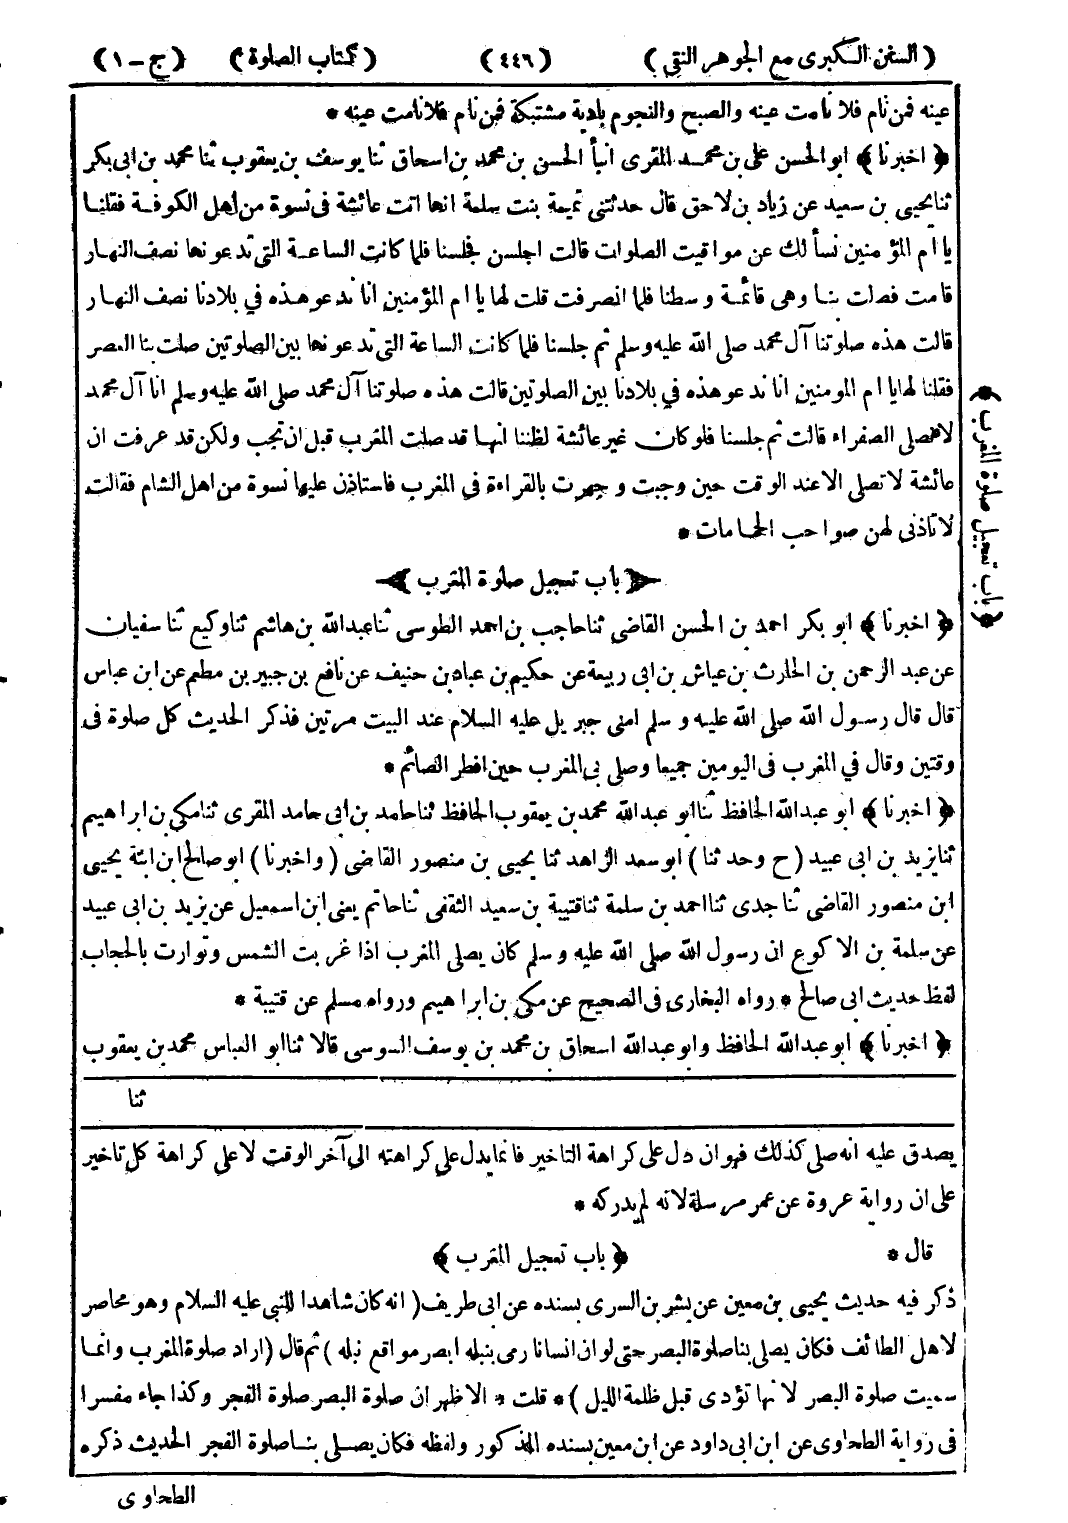 ( السنن الكبرى مع الجوهر النقى ) ( ٤٤٦ ) ( كتاب الصلوة ) ( ج - ١ )
عينه فمن نام فلا نامت عينه والصبح والنجوم بادية مشتبكة فمن نام فلا نامت عينه *
﴿ اخبرنا ﴾ ابو الحسن على بن محمد المقرى انبأ الحسن بن محمد بن اسحاق ثنا يوسف بن يعقوب ثنا محمد بن ابى بكر
ثنا يحيى بن سعيد عن زياد بن لاحق قال حدثتنى تميمة بنت سلمة انها اتت عائشة فى نسوة من اهل الكوفة فقلنا
يا ام المؤمنين نسألك عن مواقيت الصلوات قالت اجلسن فجلسنا فلما كانت الساعة التى تدعونها نصف النهار
قامت فصلت بنا وهى قائمة وسطنا فلما انصرفت قلت لها يا ام المؤمنين انا ندعو هذه في بلادنا نصف النهار
قالت هذه صلوتنا آل محمد صلى الله عليه وسلم ثم جلسنا فلما كانت الساعة التى تدعونها بين الصلوتين صلت بنا العصر
فقلنا لها يا ام المومنين انا ندعو هذه في بلادنا بين الصلوتين قالت هذه صلوتنا آل محمد صلى الله عليه وسلم انا آل محمد
لا نصلى الصفراء قالت ثم جلسنا فلو كان غير عائشة لظننا انها قد صلت المغرب قبل ان تجب ولكن قد عرفت ان
عائشة لا تصلى الا عند الوقت حين وجبت وجهرت بالقراءة في المغرب فاستاذن عليها نسوة من اهل الشام فقالت
لا تاذنى لهن صواحب الحمامات *
﴿ باب تعجيل صلوة المغرب ﴾
﴿ اخبرنا ﴾ ابو بكر احمد بن الحسن القاضى ثنا حاجب بن احمد الطوسى ثنا عبدالله بن هاشم ثنا وكيع ثنا سفيان
عن عبد الرحمن بن الحارث بن عياش بن ابى ربيعة عن حكيم بن عباد بن حنيف عن نافع بن جبير بن مطعم عن ابن عباس
قال قال رسول الله صلى الله عليه وسلم امنى جبريل عليه السلام عند البيت مرتين فذكر الحديث كل صلوة فى
وقتين وقال في المغرب فى اليومين جميعا وصلى بى المغرب حين افطر الصائم *
﴿ اخبرنا ﴾ ابو عبدالله الحافظ ثنا ابو عبدالله محمد بن يعقوب الحافظ ثنا حامد بن ابى حامد المقرى ثنا مكى بن ابراهيم
ثنا يزيد بن ابى عبيد ( ح وحدثنا ) ابو سعد الزاهد ثنا يحيى بن منصور القاضى ( واخبرنا ) ابو صالح ابن ابنة يحيى
ابن منصور القاضى ثنا جدى ثنا احمد بن سلمة ثنا قتيبة بن سعيد الثقفى ثنا حاتم يعنى ابن اسمعيل عن يزيد بن ابى عبيد
عن سلمة بن الاكوع ان رسول الله صلى الله عليه وسلم كان يصلى المغرب اذا غربت الشمس وتوارت بالحجاب
لفظ حديث ابى صالح * رواه البخارى فى الصحيح عن مكى بن ابراهيم ورواه مسلم عن قتيبة *
﴿ اخبرنا ﴾ ابو عبدالله الحافظ وابو عبدالله اسحاق بن محمد بن يوسف السوسى قالا ثنا ابو العباس محمد بن يعقوب
ثنا
﴿ باب تعجيل صلوة المغرب ﴾
يصدق عليه انه صلى كذلك فهو ان دل على كراهة التاخير فانما يدل على كراهته الى آخر الوقت لا على كراهة كل تاخير
على ان رواية عروة عن عمر مرسلة لانه لم يدركه *
قال * ﴿ باب تعجيل المغرب ﴾
ذكر فيه حديث يحيى بن معين عن بشر بن السرى بسنده عن ابى طريف ( انه كان شاهدا للنبى عليه السلام وهو محاصر
لاهل الطائف فكان يصلى بنا صلوة البصر حتى لو ان انسانا رمى بنبله ابصر مواقع نبله ) ثم قال ( اراد صلوة المغرب وانما
سميت صلوة البصر لانها تؤدى قبل ظلمة الليل ) * قلت * الاظهر ان صلوة البصر صلوة الفجر وكذا جاء مفسرا
فى رواية الطحاوى عن ابن ابى داود عن ابن معين بسنده المذكور ولفظه فكان يصلى بنا صلوة الفجر الحديث ذكره
الطحاوى